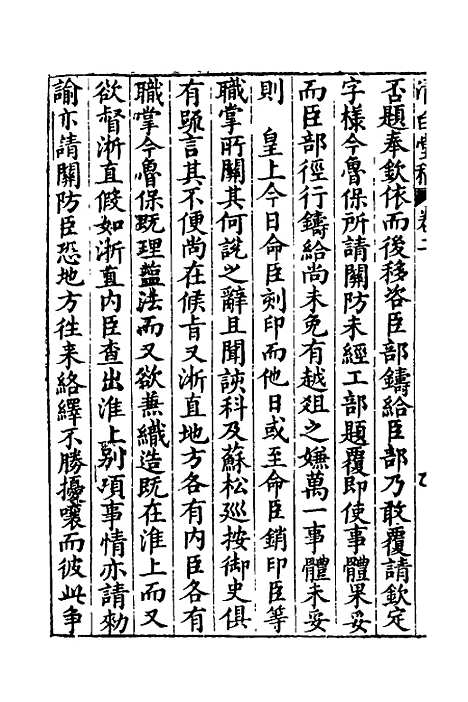 清白堂稿 卷二
否題奉欽依而後移咨臣部鑄給臣部乃敢覆請欽定
字樣今魯保所請關防未經工部題覆即使事體果妥
而臣部徑行鑄給尚未免有越俎之嫌萬一事體未妥
則　皇上今日命臣刻印而他日或至命臣銷印臣等
職掌所關其何說之辭且聞該科及蘇松巡按御史俱
有䟽言其不便尚在候旨又浙直地方各有内臣各有
職掌今魯保既理鹽法而又欲兼織造既在淮上而又
欲督浙直假如浙直内臣查出淮上别項事情亦請勑
諭亦請關防臣恐地方徃来絡繹不勝擾嚷而彼此争